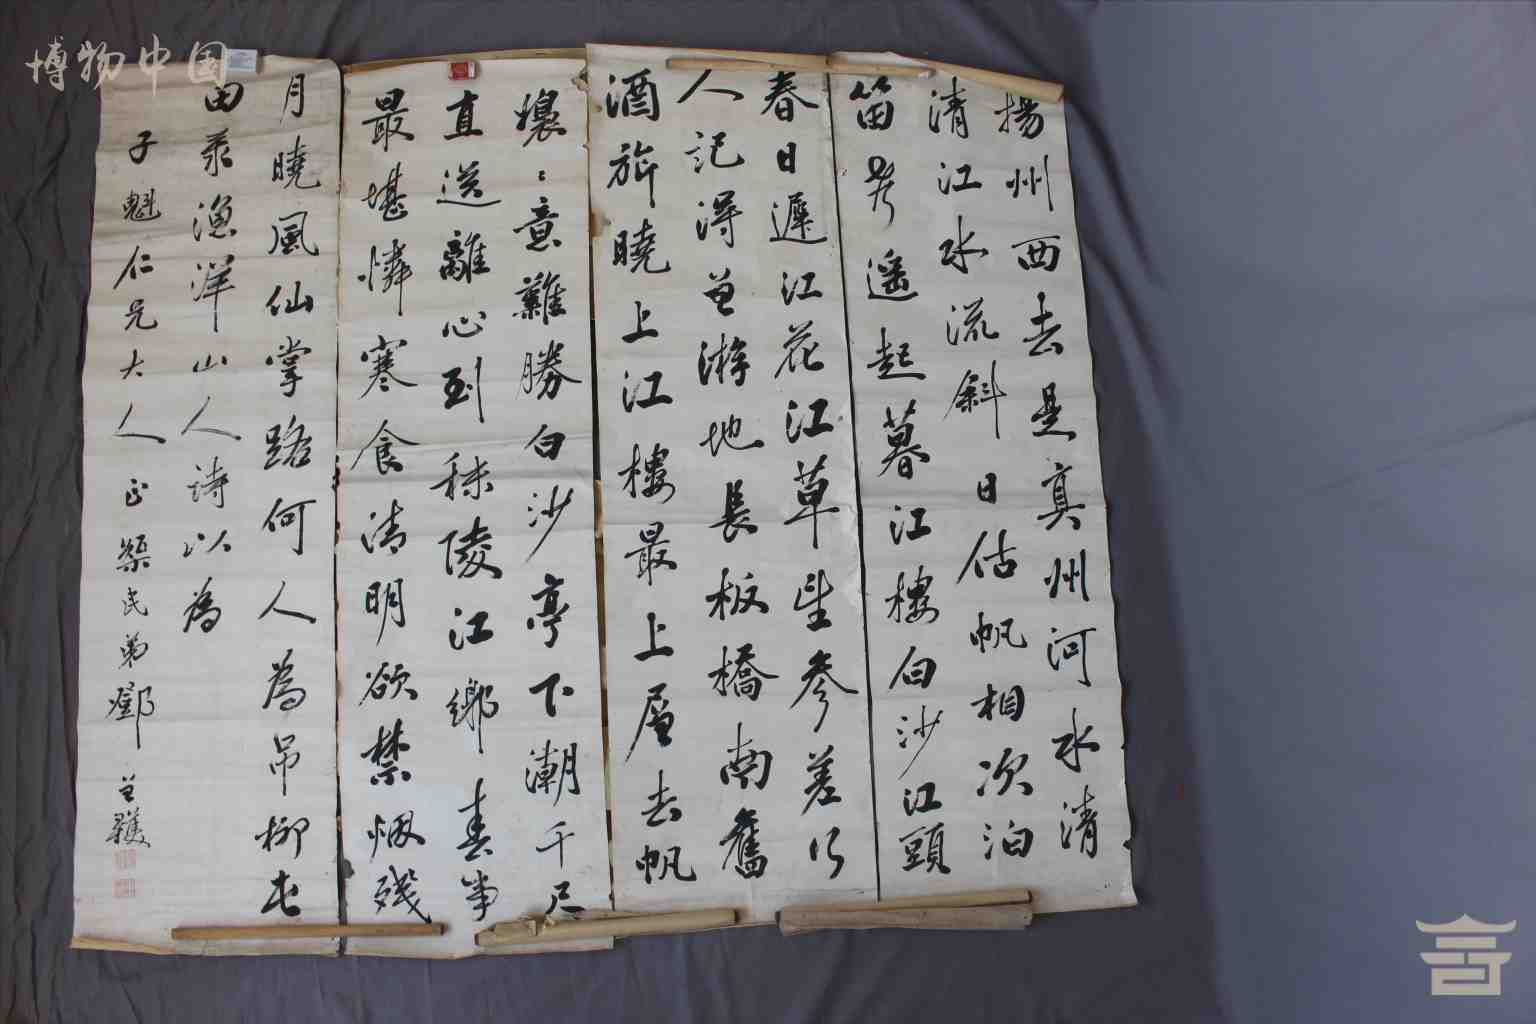 博物中国
揚州西去是真州河水清
清江水流斜日估帆相次泊
笛聲遥起暮江樓白沙江頭
春日遲江花江草望參差行
人記得曾游地長板橋南舊
酒旂曉上江樓最上層去帆
嬝:意難勝白沙亭下潮千尺
直送離心到秣陵江鄉春事
最堪憐寒食清明欲禁烟殘
月曉風仙掌路何人為吊柳屯
田录漁洋山人詩以為
子魁仁兄大人正 民弟鄧